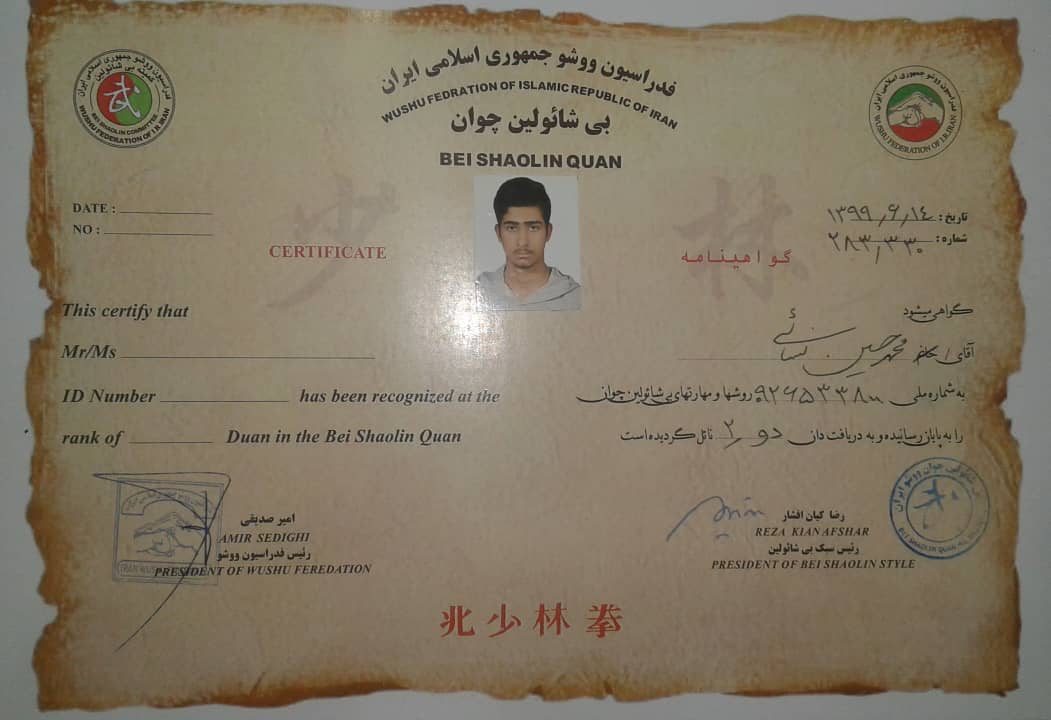 فدراسیون ووشو جمهوری اسلامی ایران
WUSHU FEDRATION OF ISLAMIC REPUBLIC OF IRAN
بی شائولین چوان
BEI SHAOLIN QUAN
فدراسیون ووشو جمهوری اسلامی ایران
کمیته بی شائولین
BEI SHAOLIN COMMITTEE
WUSHU FEDERATION OF I.R.IRAN
فدراسیون ووشو جمهوری اسلامی ایران
WUSHU FEDERATION OF I.R.IRAN
少 林
DATE :
NO :
تاریخ : ۱۳۹۹٫۶٫۱۴
شماره : ۲۸۳٫۳۳۰
CERTIFICATE
گواهینامه
This certify that
گواهی میشود
Mr/Ms
آقای / خانم محمد حسین
ID Number has been recognized at the
به شماره ملی روشها و مهارتهای بی شائولین چوان
rank of Duan in the Bei Shaolin Quan
را به پایان رسانیده و به دریافت دان دو ۲ نائل گردیده است
امیر صدیقی
AMIR SEDIGHI
رئیس فدراسیون ووشو
PRESIDENT OF WUSHU FEREDATION
رضا کیان افشار
REZA KIAN AFSHAR
رئیس سبک بی شائولین
PRESIDENT OF BEI SHAOLIN STYLE
兆少林拳